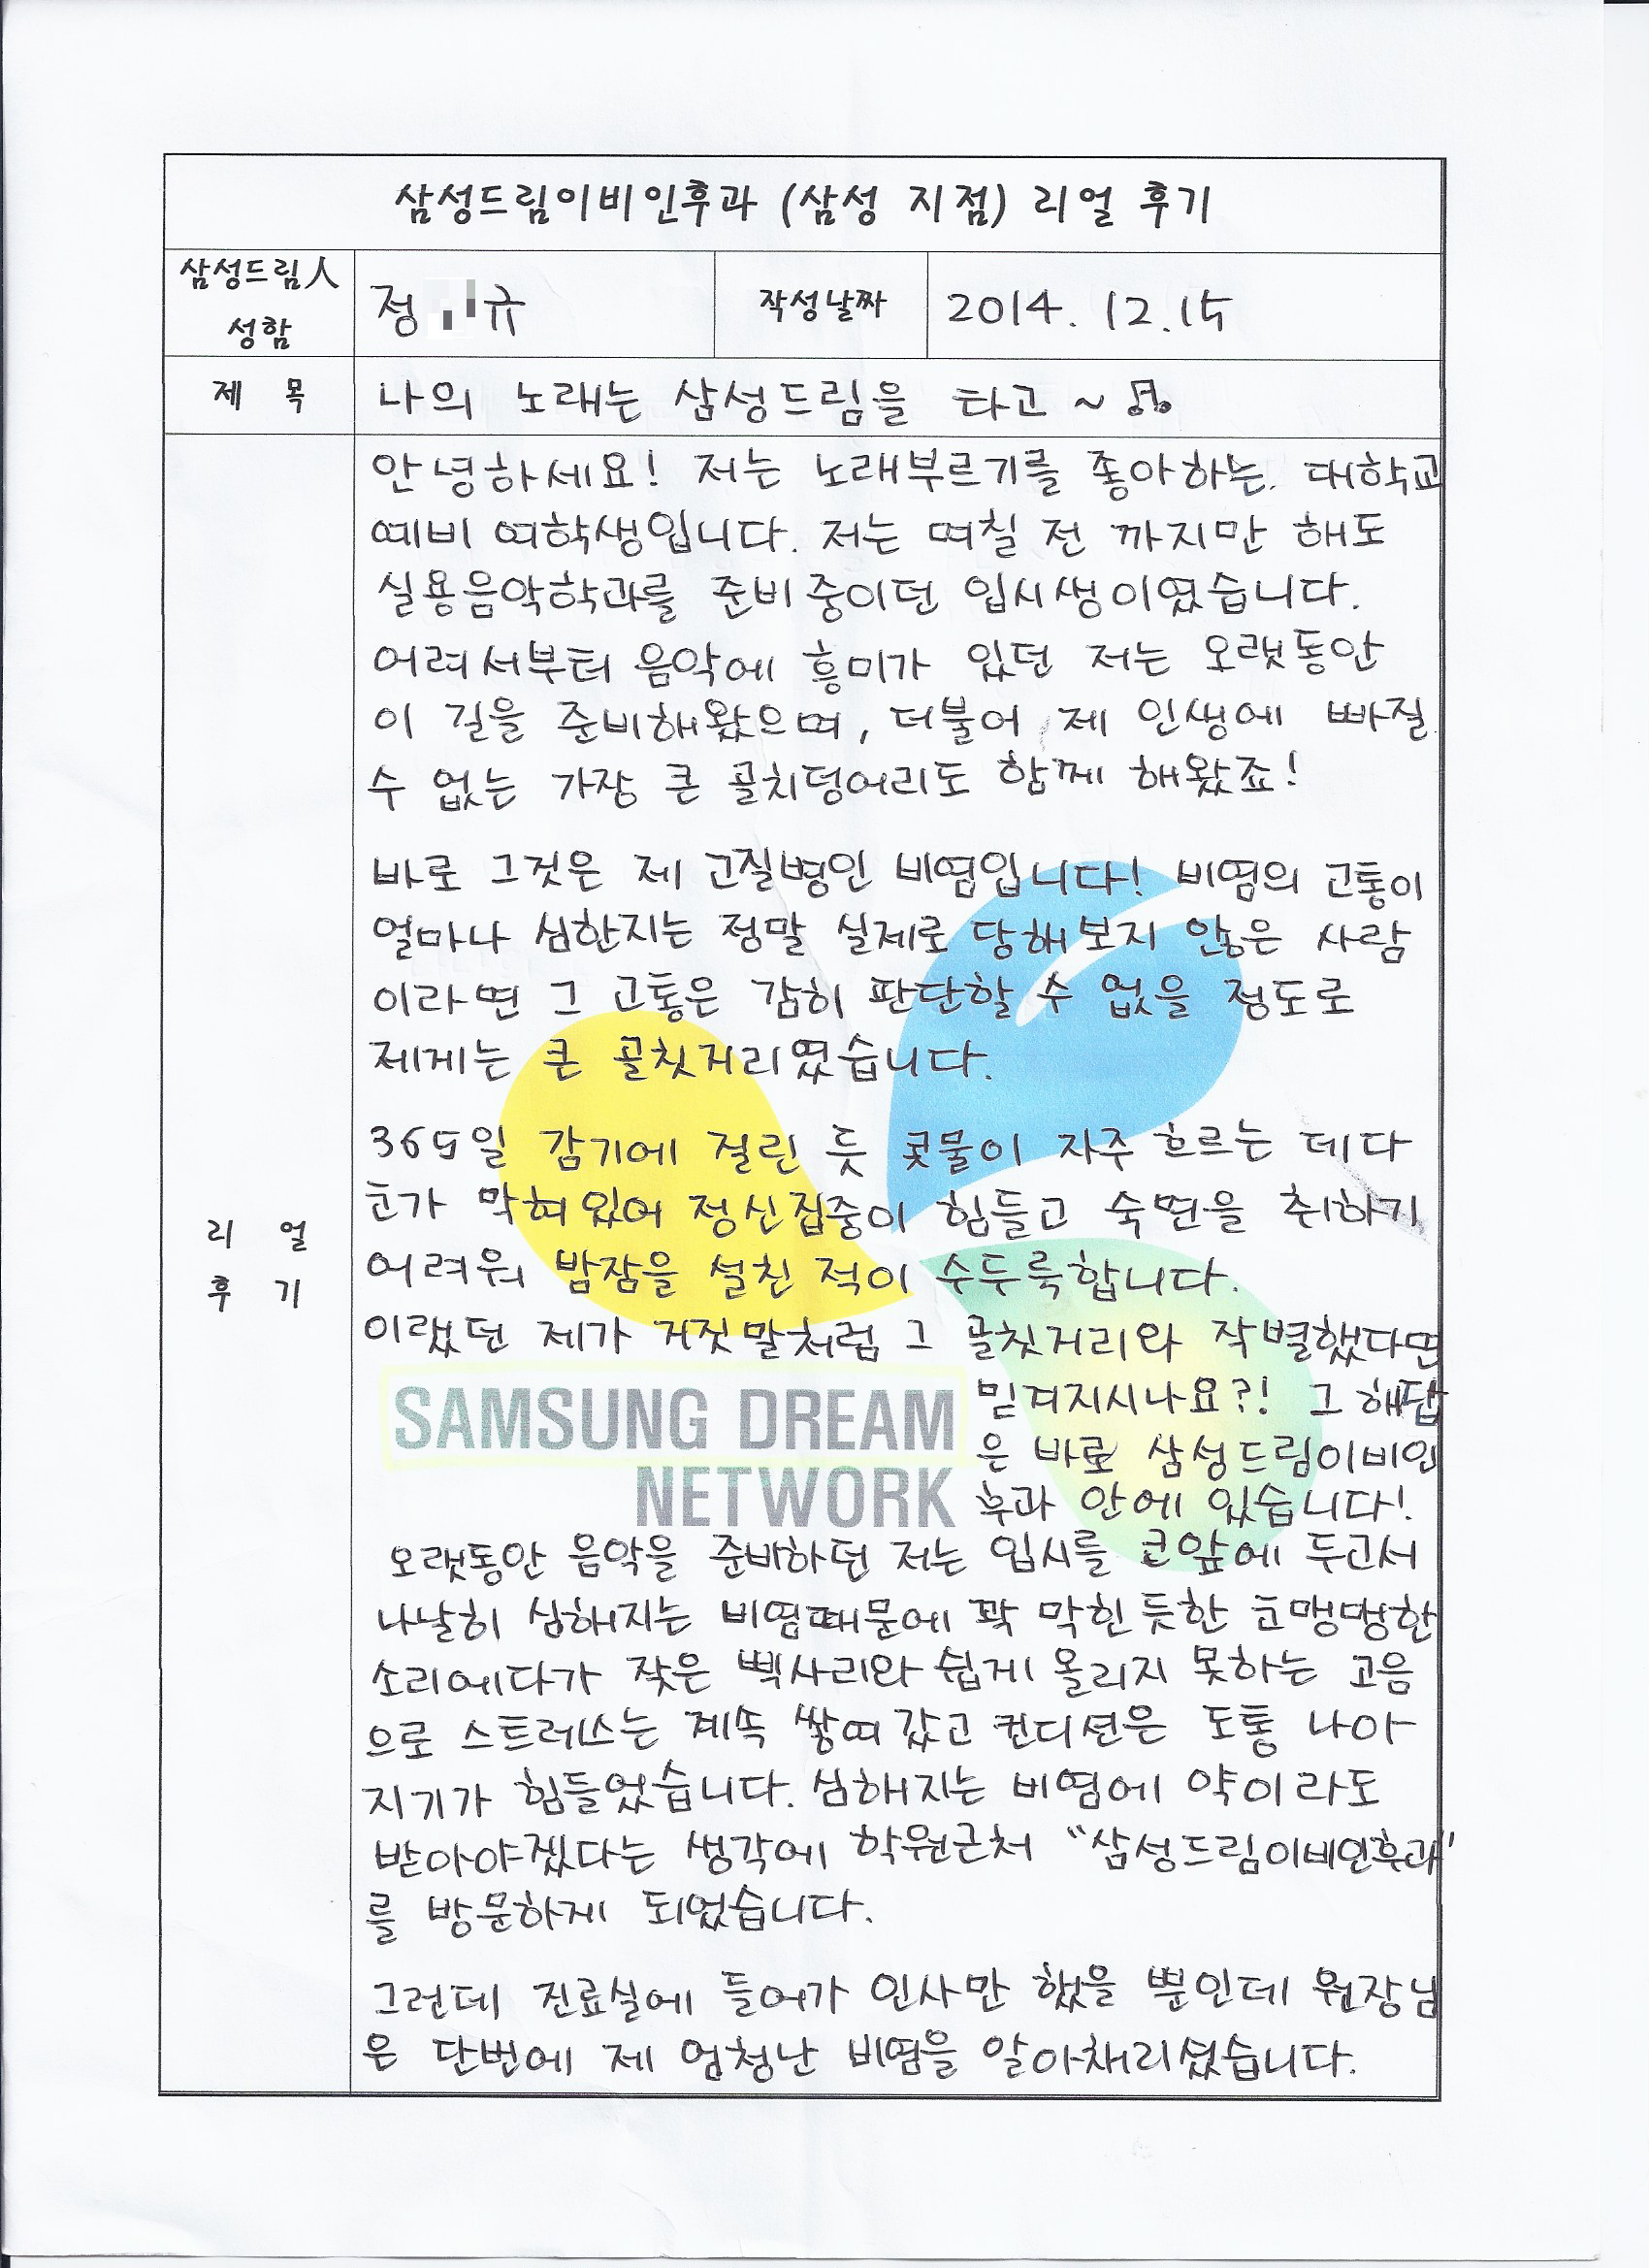 삼성드림이비인후과 (삼성 지점) 리얼 후기
삼성드림人
성함
정 규
작성날짜
2014. 12. 15
제 목
나의 노래는 삼성드림을 타고 ~ ♫
안녕하세요! 저는 노래부르기를 좋아하는. 대학교
예비 여학생입니다. 저는 며칠 전 까지만 해도
실용음악학과를 준비중이던 입시생이였습니다.
어려서부터 음악에 흥미가 있던 저는 오랫동안
이 길을 준비해왔으며, 더불어 제 인생에 빠질
수 없는 가장 큰 골치덩어리도 함께 해왔죠!
바로 그것은 제 고질병인 비염입니다! 비염의 고통이
얼마나 심한지는 정말 실제로 당해보지 않은 사람
이라면 그 고통은 감히 판단할 수 없을 정도로
제게는 큰 골칫거리였습니다.
365일 감기에 걸린 듯 콧물이 자주 흐르는 데다
코가 막혀있어 정신집중이 힘들고 숙면을 취하기
어려워 밤잠을 설친 적이 수두룩합니다.
이랬던 제가 거짓말처럼 그 골칫거리와 작별했다면
믿겨지시나요?! 그 해답
은 바로 삼성드림이비인
후과 안에 있습니다!
SAMSUNG DREAM
NETWORK
오랫동안 음악을 준비하던 저는 입시를 코앞에 두고서
나날히 심해지는 비염때문에 꽉 막힌듯한 코맹맹한
소리에다가 잦은 삑사리와 쉽게 올리지 못하는 고음
으로 스트레스는 계속 쌓여갔고 컨디션은 도통 나아
지기가 힘들었습니다. 심해지는 비염에 약이라도
받아야겠다는 생각에 학원근처 "삼성드림이비인후과"
를 방문하게 되었습니다.
그런데 진료실에 들어가 인사만 했을 뿐인데 원장님
은 단번에 제 엄청난 비염을 알아채리셨습니다.
리 얼
후 기